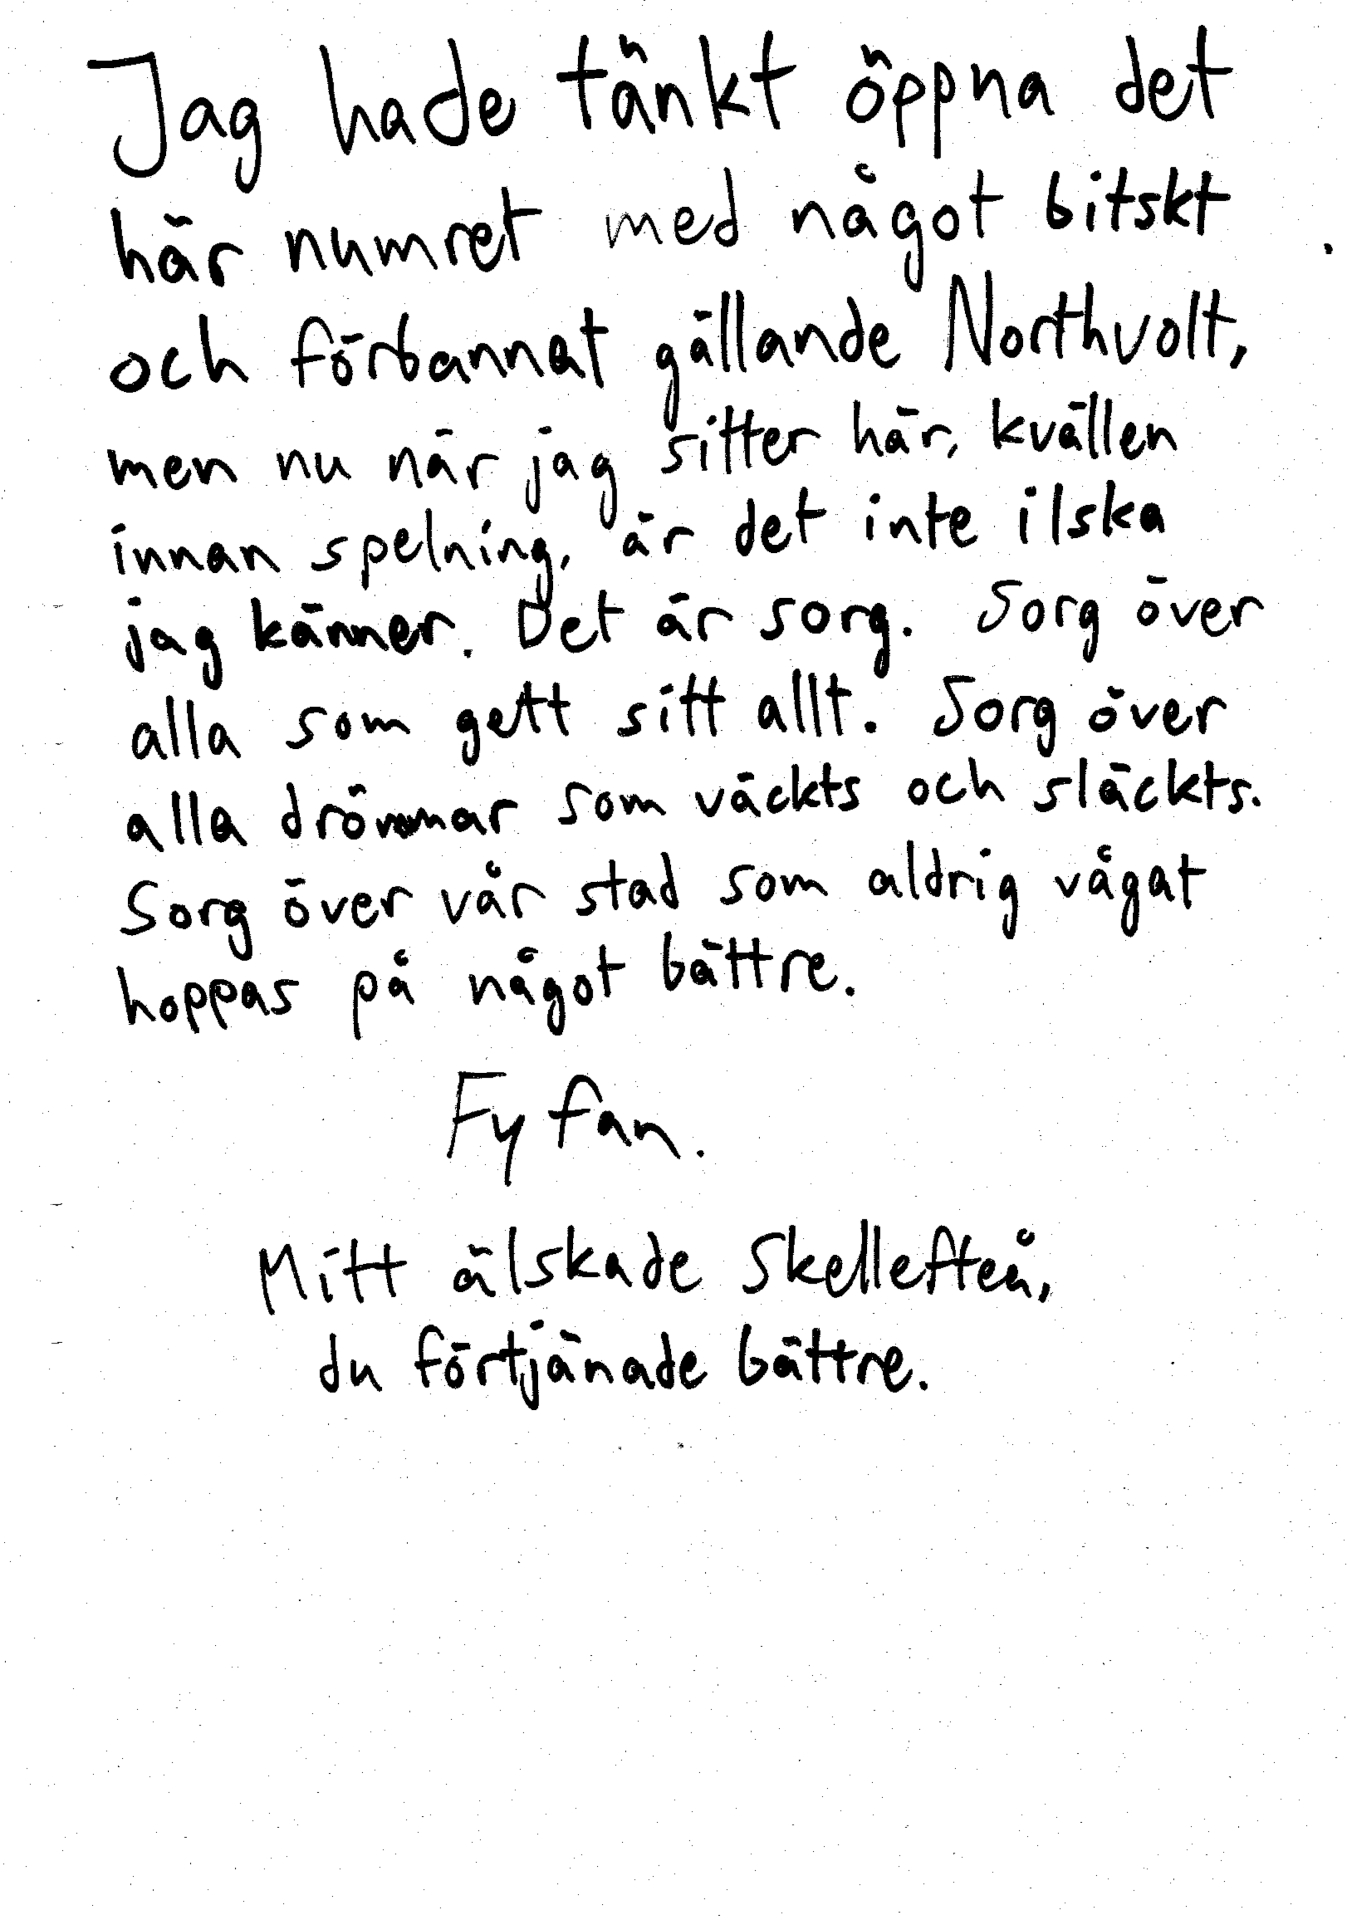 Jag hade tänkt öppna det
här numret med något bitskt
och förbannat gällande Northvolt,
men nu när jag sitter här, kvällen
innan spelning, är det inte ilska
jag känner. Det är sorg. Sorg över
alla som gett sitt allt. Sorg över
alla drömmar som väckts och släckts.
Sorg över vår stad som aldrig vågat
hoppas på något bättre.
Fy fan.
Mitt älskade Skellefteå,
du förtjänade bättre.